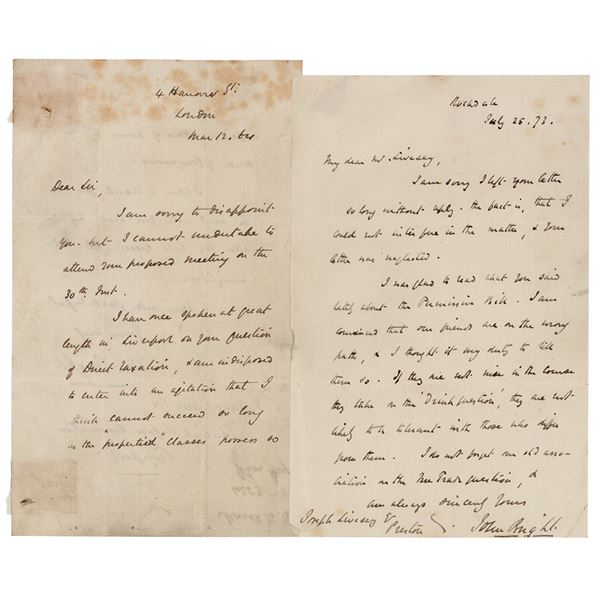 4 Hanover St.
London
Mar 12. 64
Dear Sir,
I am sorry to disappoint
you - but I cannot undertake to
attend your proposed meeting on the
30th Inst.
I have once spoken at great
length in Liverpool on your question
of Direct Taxation, & am indisposed
to enter into an agitation that I
think cannot succeed so long
as the "propertied" classes possess so
Rochdale
July 25. 73.
My dear Mr Livesey,
I am sorry I left your letter
so long without reply - the fact is, that I
could not interfere in the matter, & your
letter was neglected.
I was glad to read what you said
lately about the Permissive Bill. I am
convinced that our friends are on the wrong
path, & I thought it my duty to tell
them so. If they are not wise in the course
they take on the "Drink question", they are not
likely to be tolerant with those who differ
from them. I do not forget our old asso-
ciation on the Free Trade question, &
am always sincerely yours
Joseph Livesey Esq
Preston
John Bright.